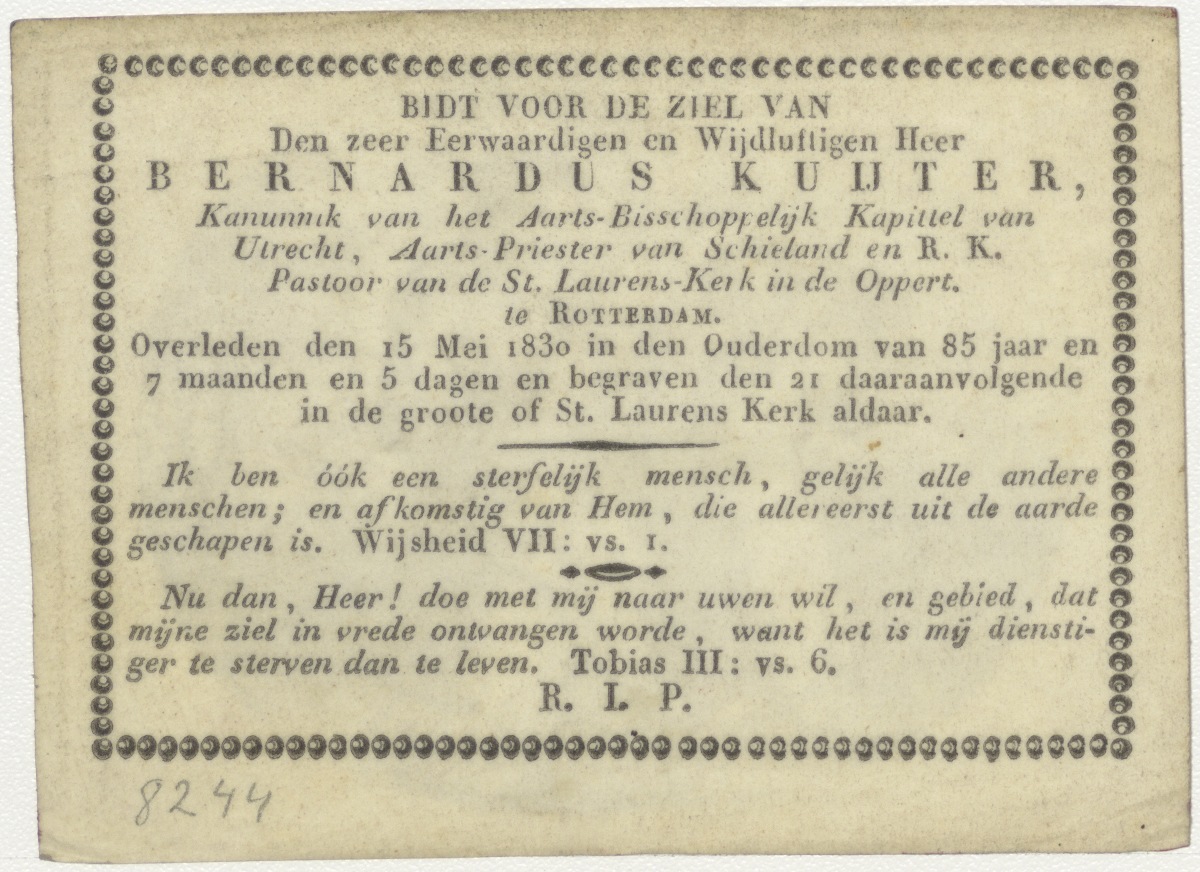 BIDT VOOR DE ZIEL VAN
Den zeer Eerwaardigen en Wijdluftigen Heer
BERNARDUS KUIJTER,
Kanunnik van het Aarts-Bisschoppelijk Kapittel van
Utrecht, Aarts-Priester van Schieland en R. K.
Pastoor van de St. Laurens-Kerk in de Oppert.
te ROTTERDAM.
Overleden den 15 Mei 1830 in den Ouderdom van 85 jaar en
7 maanden en 5 dagen en begraven den 21 daaraanvolgende
in de groote of St. Laurens Kerk aldaar.
Ik ben óók een sterfelijk mensch, gelijk alle andere
menschen; en afkomstig van Hem, die allereerst uit de aarde
geschapen is. Wijsheid VII: vs. 1.
Nu dan, Heer! doe met mij naar uwen wil, en gebied, dat
mijne ziel in vrede ontvangen worde, want het is mij diensti-
ger te sterven dan te leven. Tobias III: vs. 6.
R. I. P.
8244